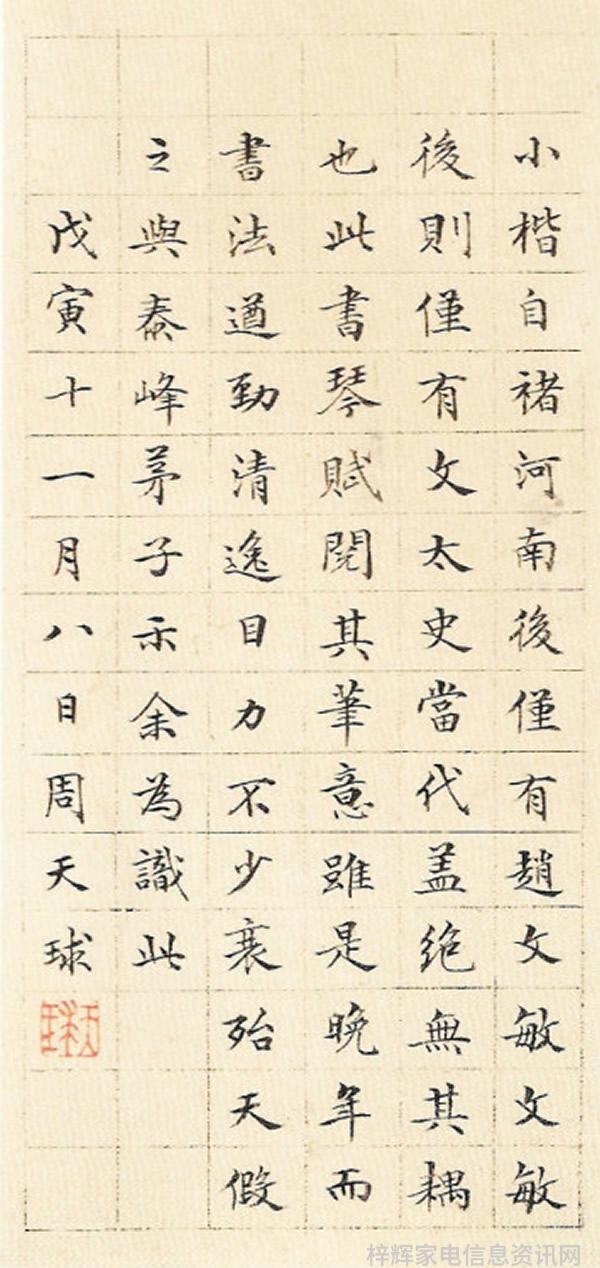 小楷自褚河南後僅有趙文敏文敏
後則僅有文太史當代盖絶無其耦
也此書琴賦閱其筆意雖是晚年而
書法遒勁清逸目力不少衰殆天假
之與泰峰茅子示余為識此
戊寅十一月八日周天球
梓辉家电信息资讯网